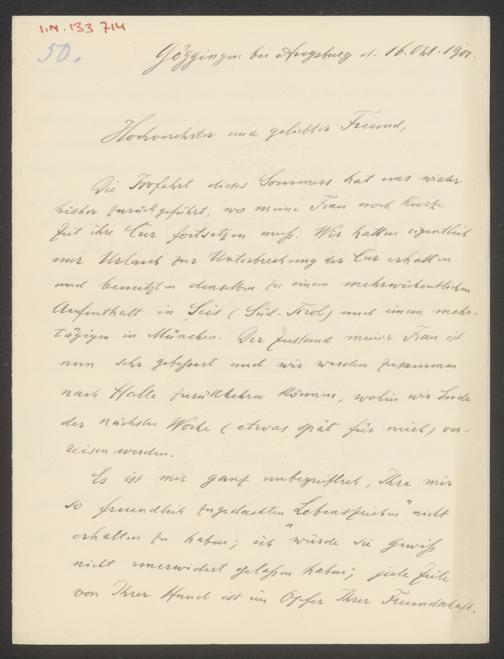 I.N. 133 714
50.
Göggingen bei Augsburg d. 16. Okt. 1901.
Hochverehrter und geliebter Freund,
Die Irrfahrt dieses Sommers hat uns wieder
hieher zurückgeführt, wo meine Frau noch kurze
Zeit ihre Cur fortsetzen muß. Wir hatten eigentlich
nur Urlaub zur Unterbrechung der Cur erhalten
und benutzten denselben zu einem mehrwöchentlichen
Aufenthalt in Seis (Süd-Tirol) und einem mehr-
tägigen in München. Der Zustand meiner Frau ist
nun sehr gebessert und wir werden zusammen
nach Halle zurückkehren können, wohin wir Ende
der nächsten Woche (etwas spät für mich) ver-
reisen werden.
Es ist mir ganz unbegreiflich, Ihre mir
so freundlich zugedachten „Lebenszeichen" nicht
erhalten zu haben; ich würde sie gewiß
nicht unerwidert gelassen haben; jede Zeile
von Ihrer Hand ist ein Opfer Ihrer Freundschaft.